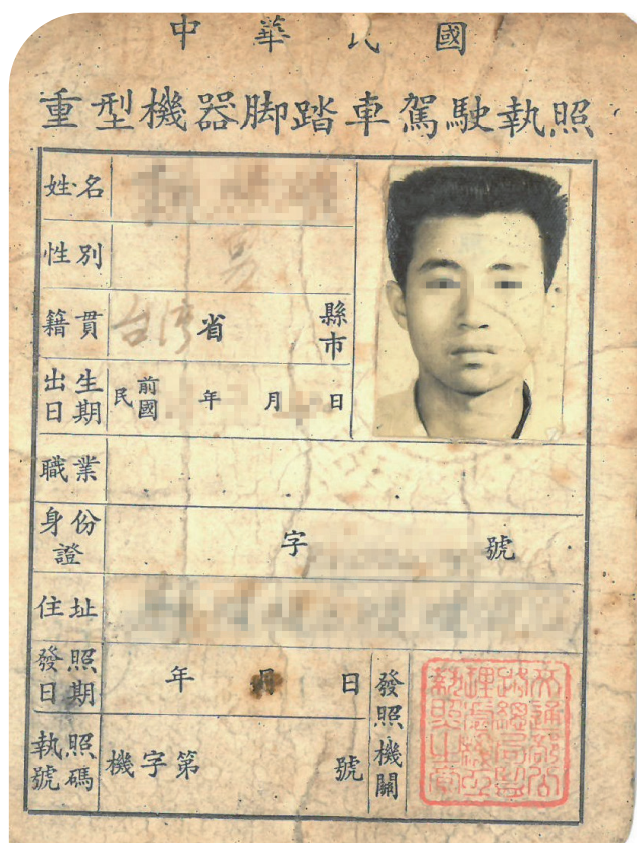 中華民國
重型機器脚踏車駕駛執照
姓名
性別 男
籍貫 台湾省 縣市
出生日期 民國前 年 月 日
職業
身份證 字 號
住址
發照日期 年 月 日
執照號碼 機字第 號
發照機關